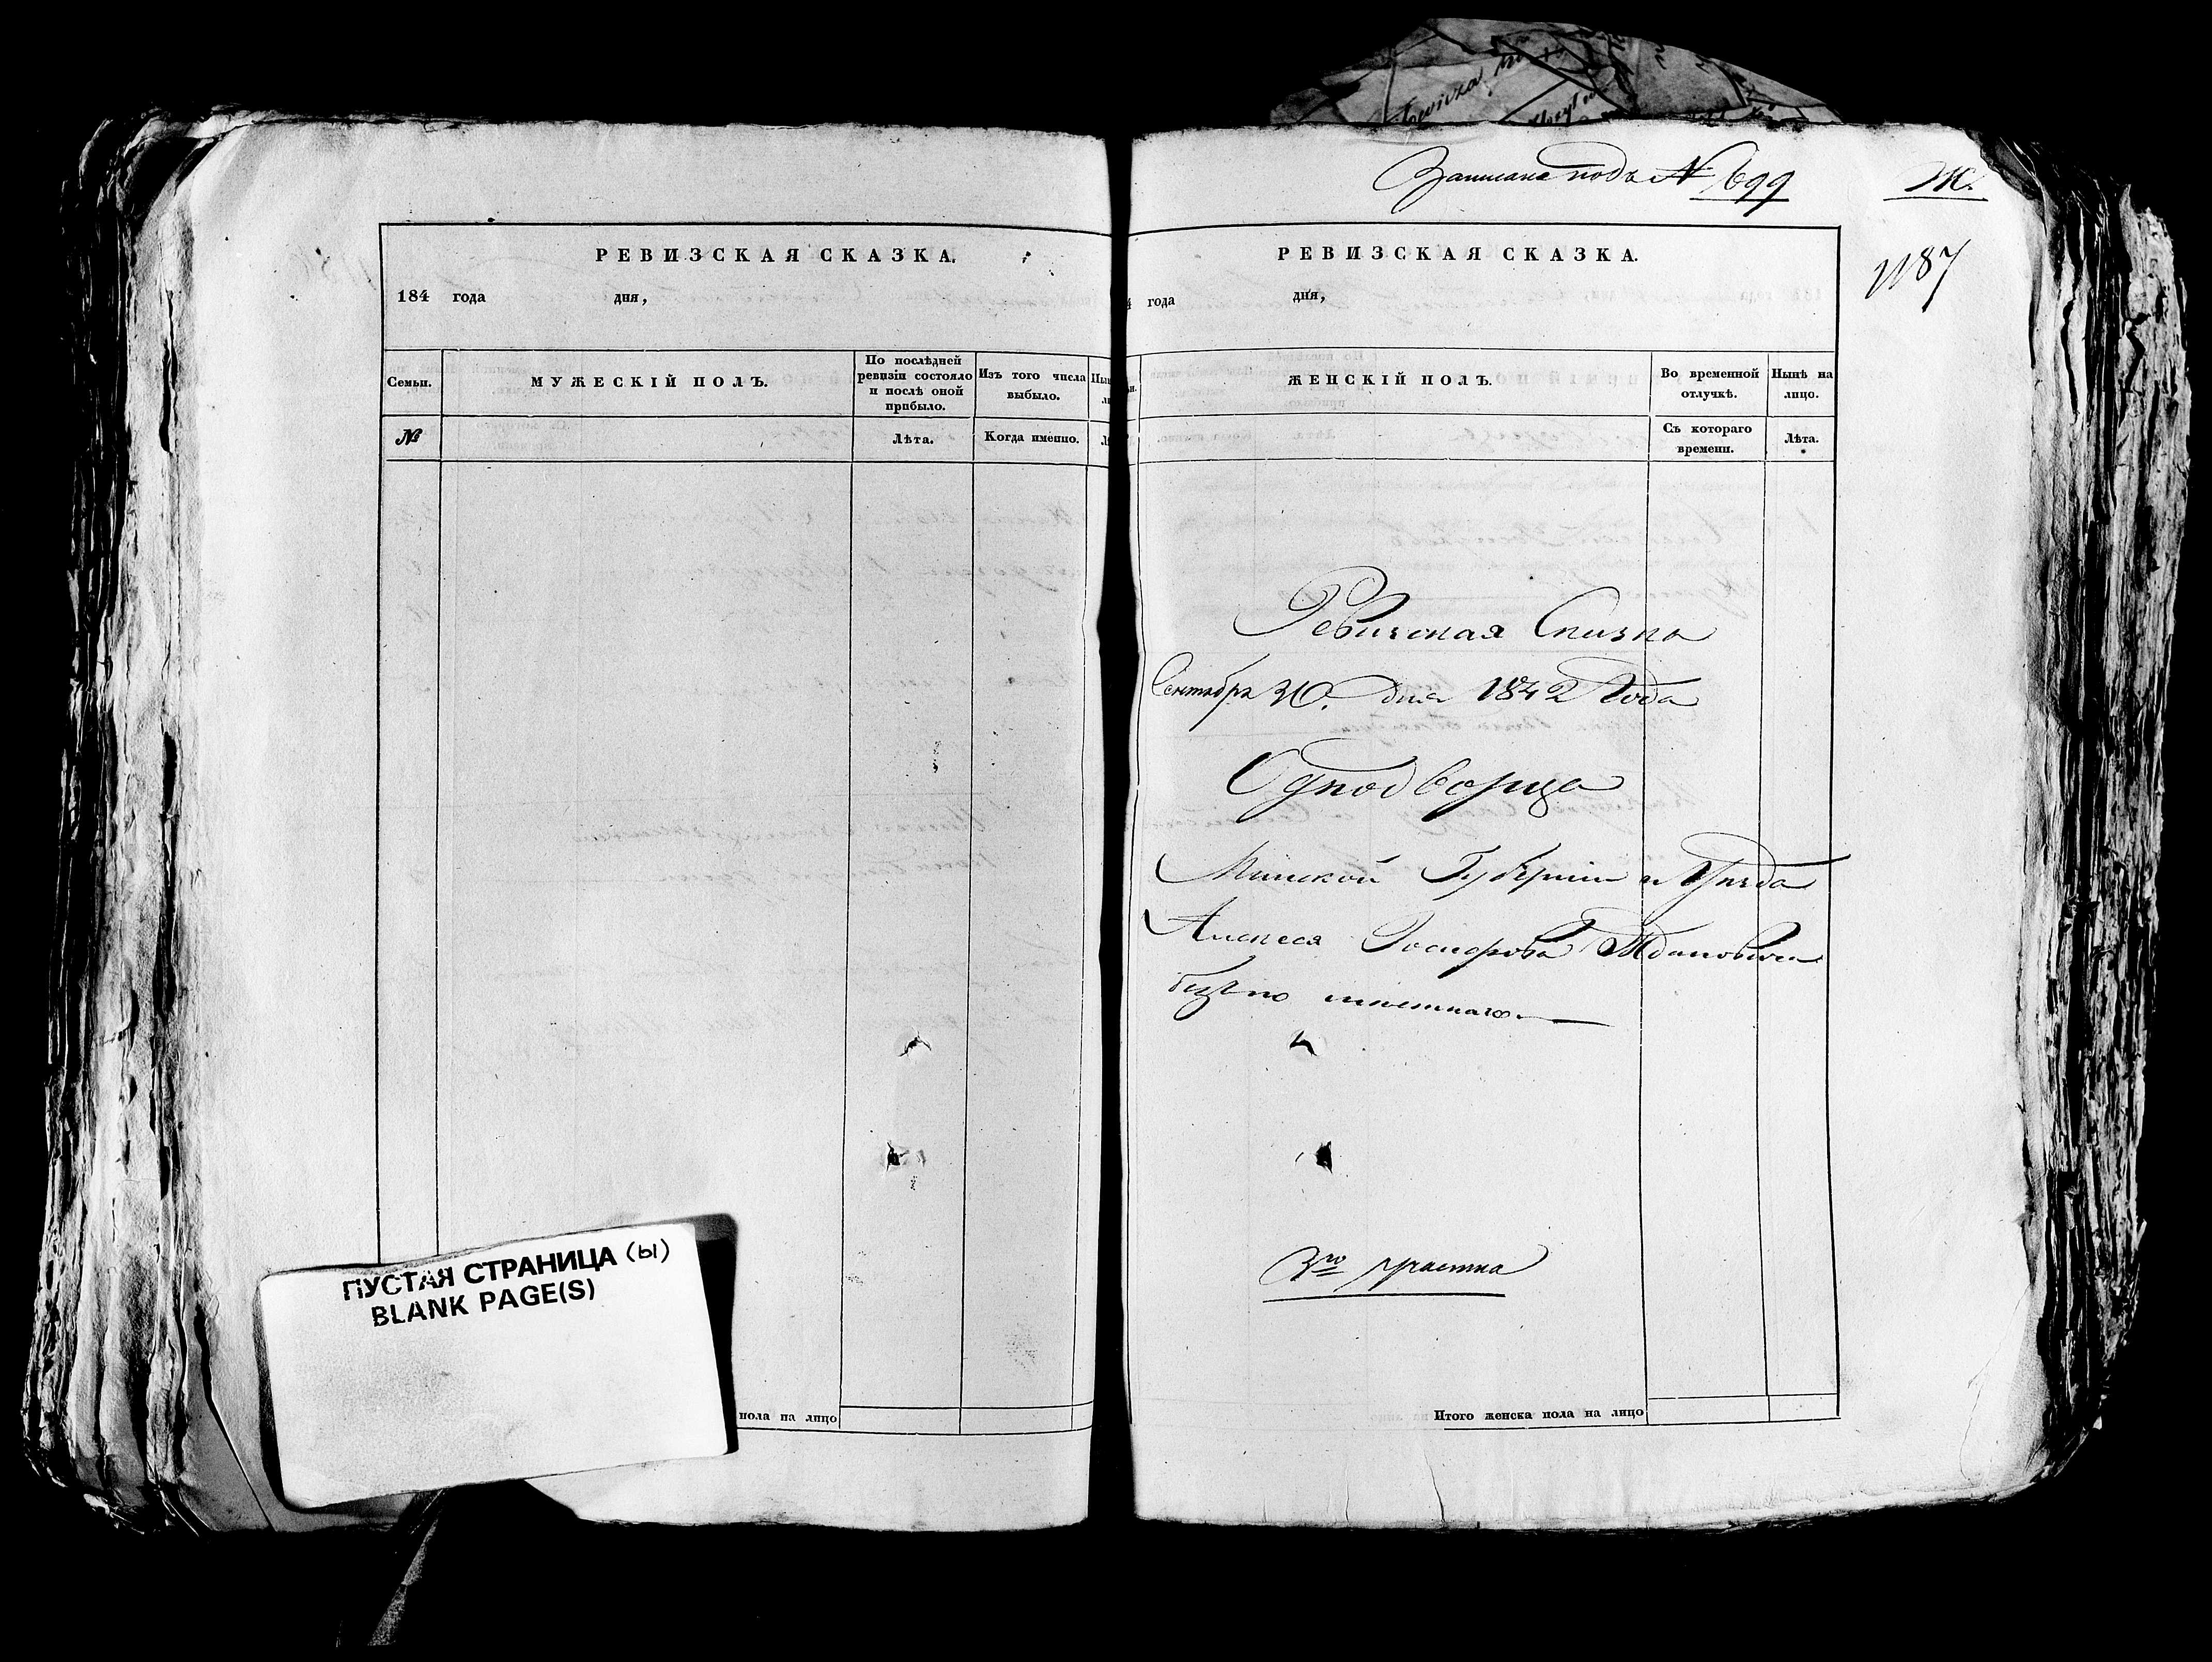 РЕВИЗСКАЯ СКАЗКА.
184 года дня,
Семьи.
МУЖЕСКІЙ ПОЛЪ.
По послѣдней ревизіи состояло и послѣ оной прибыло.
Изъ того числа выбыло.
№
Лѣта.
Когда именно.
пола на лицо
ПУСТАЯ СТРАНИЦА (Ы)
BLANK PAGE(S)
Записана подъ № 699
Ж.
1187
РЕВИЗСКАЯ СКАЗКА.
года дня,
ЖЕНСКІЙ ПОЛЪ.
Во временной отлучкѣ.
Нынѣ на лицо.
Съ котораго времени.
Лѣта.
Ревизская Сказка
Сентября 30. дня 1842 Года
Однодворца
Минской Губерніи и Уѣзда
Алексея Ждановича
3го участка
Итого женска пола на лицо